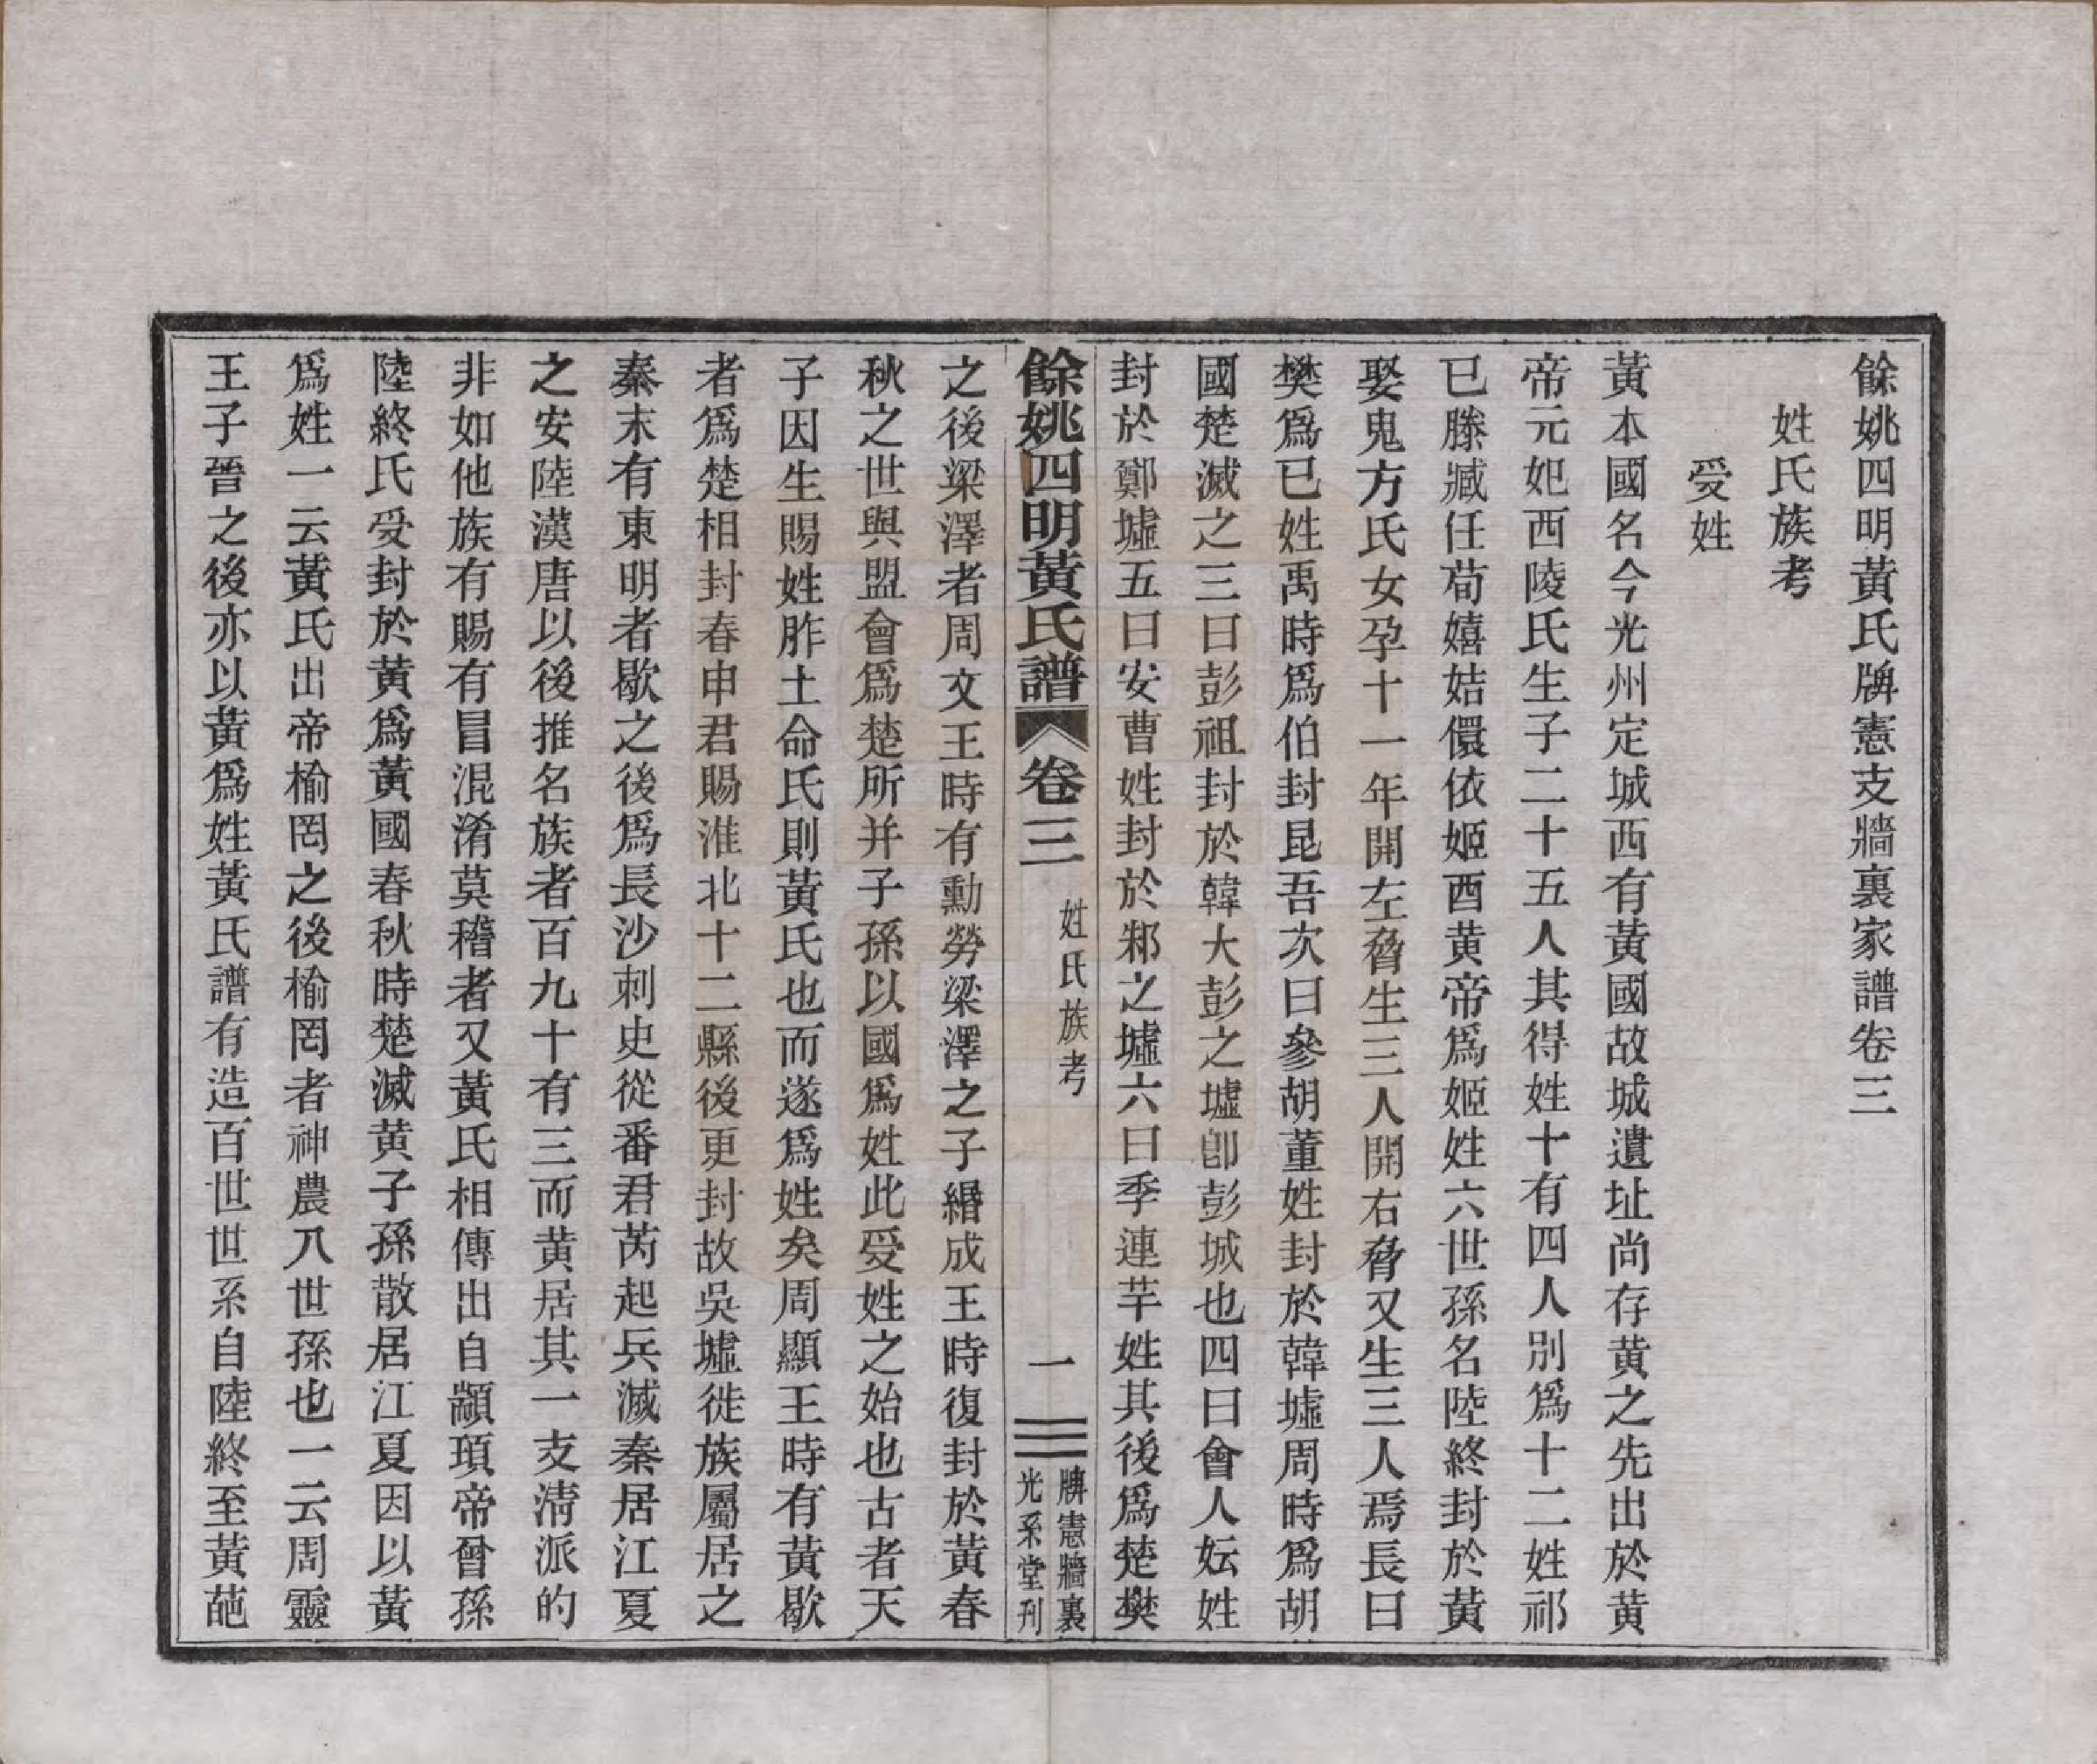 餘姚四明黃氏牌憲支牆裏家譜卷三
姓氏族考
受姓
黃本國名今光州定城西有黃國故城遺址尚存黃之先出於黃
帝元妃西陵氏生子二十五人其得姓十有四人別爲十二姓祁
已滕臧任荀嬉姞儇依姬酉黃帝爲姬姓六世孫名陸終封於黃
娶鬼方氏女孕十一年開左脅生三人開右脅又生三人焉長曰
樊爲已姓禹時爲伯封昆吾次曰參胡董姓封於韓墟周時爲胡
國楚滅之三曰彭祖封於韓大彭之墟卽彭城也四曰會人妘姓
封於鄭墟五曰安曹姓封於邾之墟六曰季連芉姓其後爲楚樊
餘姚四明黃氏譜 卷三 姓氏族考 一 牌憲牆裏
光系堂刊
之後梁澤者周文王時有勳勞梁澤之子緡成王時復封於黃春
秋之世與盟會爲楚所并子孫以國爲姓此受姓之始也古者天
子因生賜姓胙土命氏則黃氏也而遂爲姓矣周顯王時有黃歇
者爲楚相封春申君賜淮北十二縣後更封故吳墟徙族屬居之
秦末有東明者歇之後爲長沙刺史從番君芮起兵滅秦居江夏
之安陸漢唐以後推名族者百九十有三而黃居其一支淸派的
非如他族有賜有冒混淆莫稽者又黃氏相傳出自顓頊帝曾孫
陸終氏受封於黃爲黃國春秋時楚滅黃子孫散居江夏因以黃
爲姓一云黃氏出帝榆罔之後榆罔者神農八世孫也一云周靈
王子晉之後亦以黃爲姓黃氏譜有造百世世系自陸終至黃葩